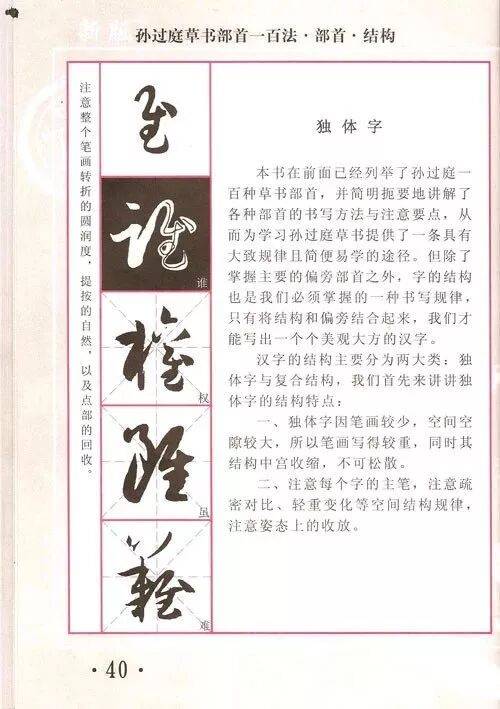 新版
孙过庭草书部首一百法·部首·结构
注意整个笔画转折的圆润度，提按的自然，以及点部的回收。
隹
谁
谁
權
权
雖
虽
難
难
独体字
本书在前面已经列举了孙过庭一
百种草书部首，并简明扼要地讲解了
各种部首的书写方法与注意要点，从
而为学习孙过庭草书提供了一条具有
大致规律且简便易学的途径。但除了
掌握主要的偏旁部首之外，字的结构
也是我们必须掌握的一种书写规律，
只有将结构和偏旁结合起来，我们才
能写出一个个美观大方的汉字。
汉字的结构主要分为两大类：独
体字与复合结构，我们首先来讲讲独
体字的结构特点：
一、独体字因笔画较少，空间空
隙较大，所以笔画写得较重，同时其
结构中宫收缩，不可松散。
二、注意每个字的主笔，注意疏
密对比、轻重变化等空间结构规律，
注意姿态上的收放。
·40·